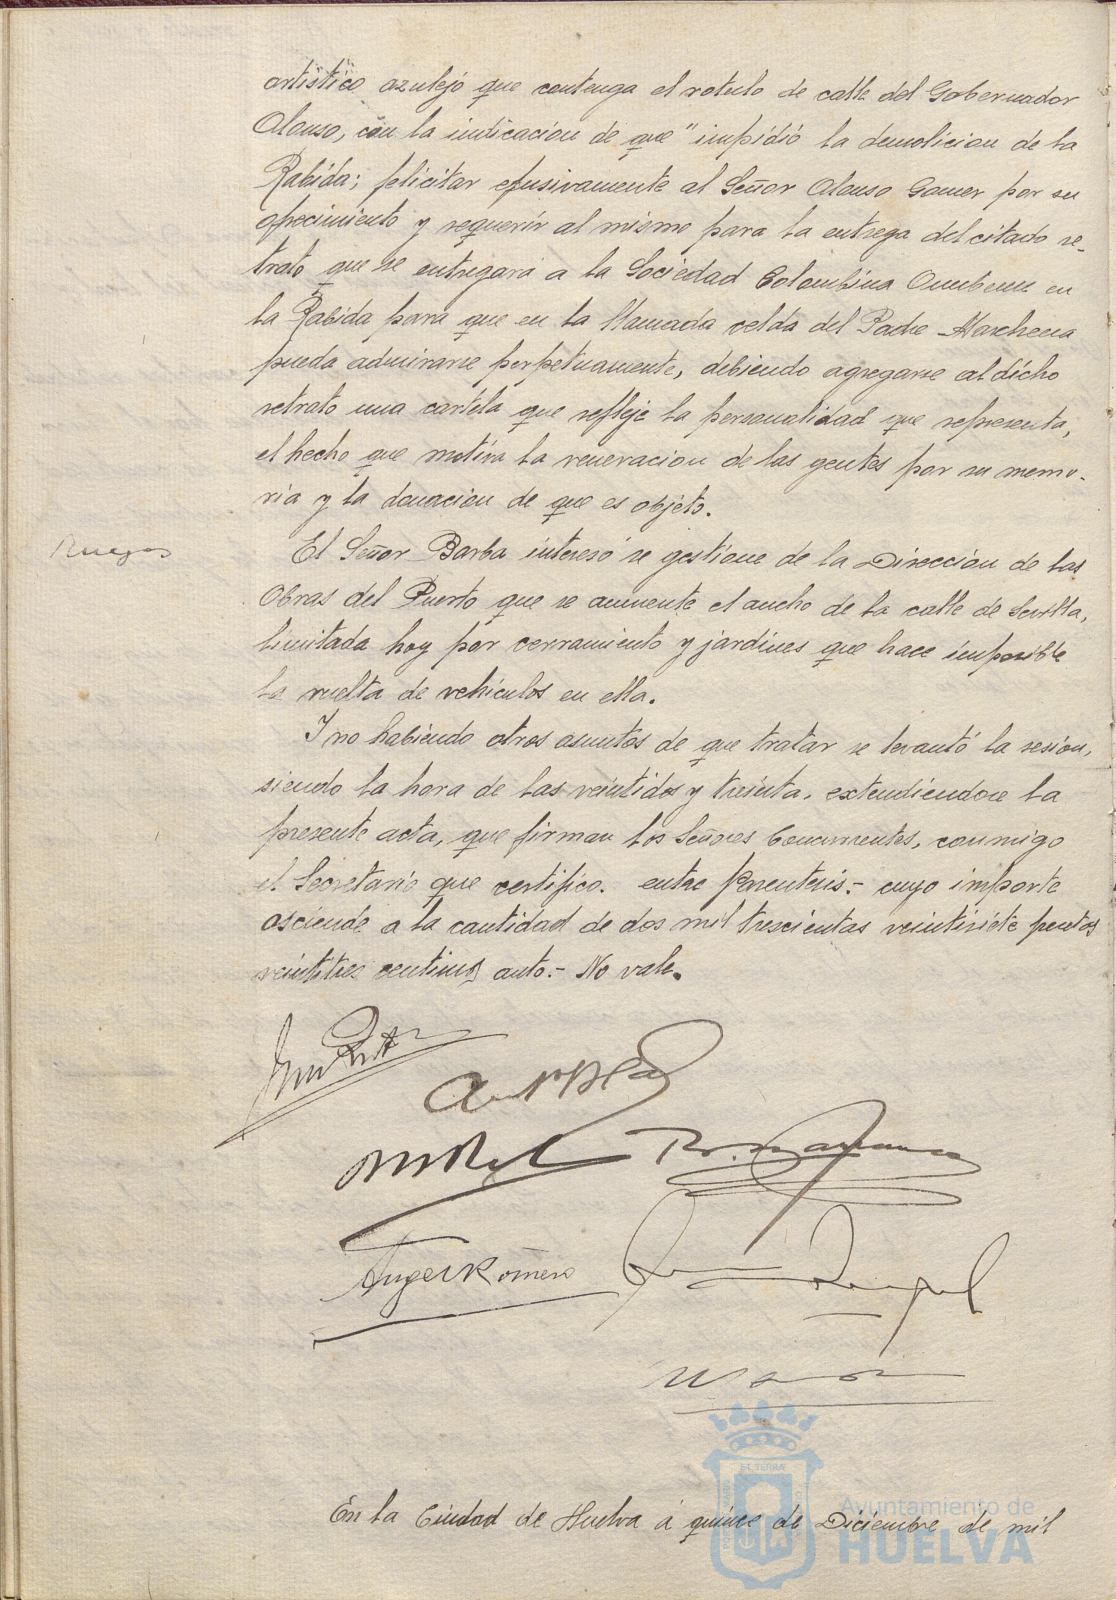 artístico azulejo que contenga el rotulo de calle del Gobernador
Alonso, con la indicacion de que "impidió la demolicion de la
Rabida; felicitar efusivamente al Señor Alonso Gamer por su
ofrecimiento y requerir al mismo para la entrega del citado re-
trato que se entregará a la Sociedad Colombina Onubense en
la Rabida para que en la llamada celda del Padre Marchena
pueda admirarse perpetuamente, debiendo agregarse al dicho
retrato una cartela que refleje la personalidad que representa,
el hecho que motiva la veneracion de las gentes por su memo-
ria y la donacion de que es objeto.
Ruegos
El Señor Barba interesó se gestione de la Direccion de las
Obras del Puerto que se aumente el ancho de la calle de Sevilla,
limitada hoy por cerramiento y jardines que hace imposible
la vuelta de vehiculos en ella.
Y no habiendo otros asuntos de que tratar se levantó la sesion,
siendo la hora de las veintidos y treinta, extendiendose la
presente acta, que firman los Señores Concurrentes, conmigo
el Secretario que certifico. entre parentesis.- cuyo importe
asciende a la cantidad de dos mil trescientas veintisiete pesetas
veintitres centimos, auto.- No vale.
Angel Romero
En la Ciudad de Huelva á quince de Diciembre de mil
Ayuntamiento de
HUELVA